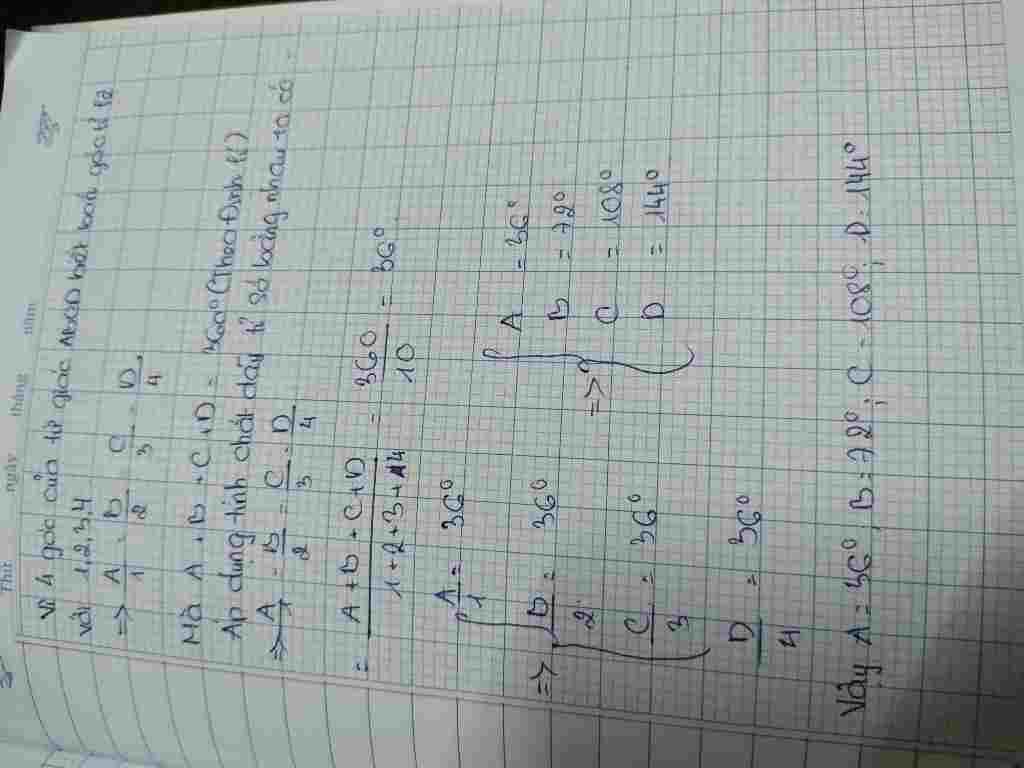 Thứ ngày tháng năm
Vì 4 góc của tứ giác ABCD biết 4 góc tỉ lệ
với 1,2,3,4
=> A/1 = B/2 = C/3 = D/4
Mà A + B + C + D = 360° (Theo Định lí)
Áp dụng tính chất dãy tỉ số bằng nhau ta có
=> A/1 = B/2 = C/3 = D/4
= A + B + C + D / 1 + 2 + 3 + 4 = 360/10 = 36°
=> { A/1 = 36°
B/2 = 36°
C/3 = 36°
D/4 = 36°
=> { A = 36°
B = 72°
C = 108°
D = 144°
Vậy A = 36°, B = 72°; C = 108°; D = 144°